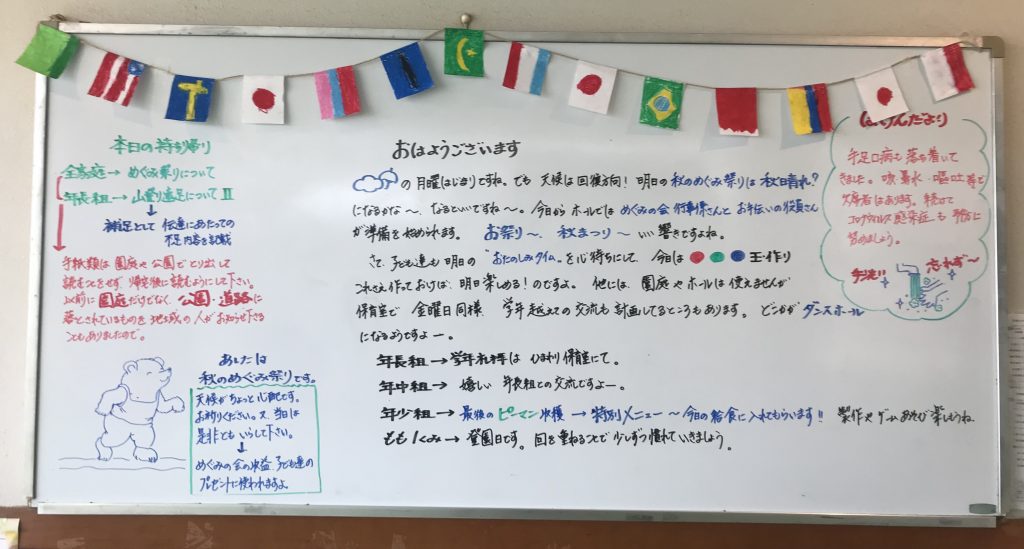 本日の持ち帰り
全家庭→ めぐみ祭りについて
年長組→ 山登り遠足について II
↓
補足として 伝達にあたっての
不足内容を記載
手紙類は園庭や公園でとり出して
読むことをせず 帰宅後に読むようにして下さい。
以前に園庭だけでなく、公園・道路に
落とされているものを地域の人がお知らせ下さる
こともありましたので。
あしたは
秋のめぐみ祭りです。
天候がちょっと心配です。
お祈りください。又、当日は
是非でも いらして下さい。
↓
めぐみの会の収益、子ども達の
プレゼントに使われますよ
おはようございます
の 月曜はじまりですね。でも 天候は回復方向！ 明日の秋のめぐみ祭りは 秋日晴れ？
になるかな～、なるといいですね～。今日から ホールでは めぐみの会 行事係さんと お手伝いの役員さん
が準備を始められます。 お祭り～、秋まつり～ いい響きですよね。
さて、子ども達も明日の "おたのしみタイム" を心待ちにして、今日は 玉作り
これさえ作っておけば、明日楽しめる！のですよ。 他には、園庭やホールは使えませんが
保育室で 金曜日同様 学年越えての交流も計画してるところもあります。 どこかが ダンスホール
になるようですよー。
年長組 → 学年礼拝は ひまわり保育室にて。
年中組 → 嬉しい 年長組との交流ですよー。
年少組 → 最後の ピーマン収穫 → 特別メニュー ～今日の給食に入れてもらいます!! 製作やゲームあそび楽しもうね
ももぐみ → 登園日です。回を重ねることで少しずつ慣れていきましょう。
ほけんだより
手足口病も落ち着いて
きました。咳、鼻水・嘔吐等で
欠席者はあります。続けて
コロナウィルス感染症も 予防に
努めましょう。
手洗い 忘れず～